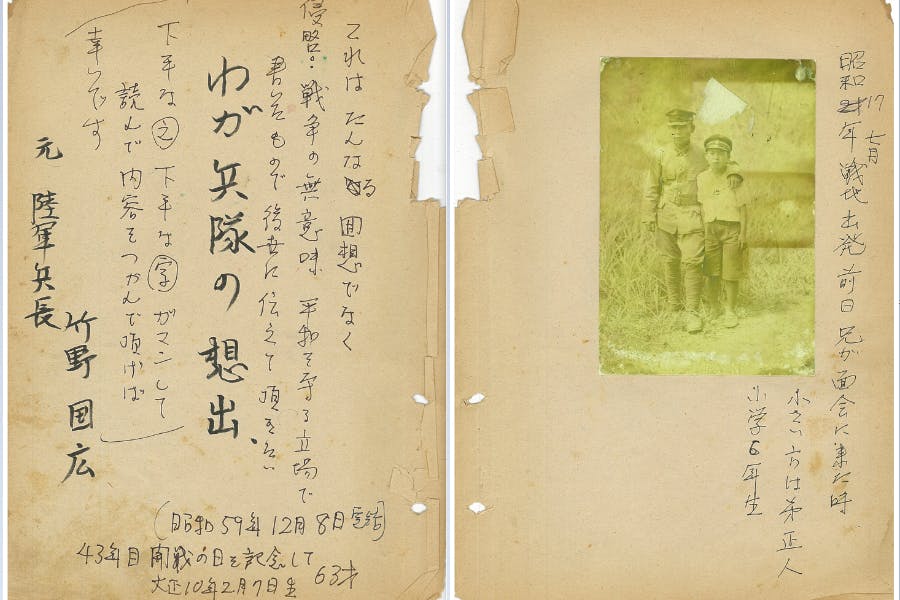 昭和17年七月戦地出発前日兄が面会に来た時
小さい方は弟正人
小学6年生
これはたんなる回想でなく
侵略・戦争の無意味 平和を守る立場で
書いたもので後世に伝えて頂きたい
わが兵隊の想出.
下手な文 下手な字がマンして
読んで内容をつかんで頂ければ
幸いです
元 陸軍兵長
竹野国広
(昭和59年12月8日
43年目開戦の日を記念して
大正10年2月7日生 63才